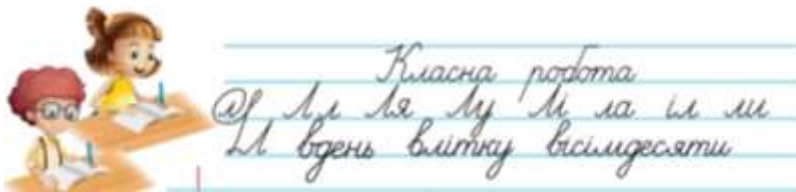 Класна робота
Л Лл Ля Лу Лі ла іл ли
Л вдень влітку вісімдесяти